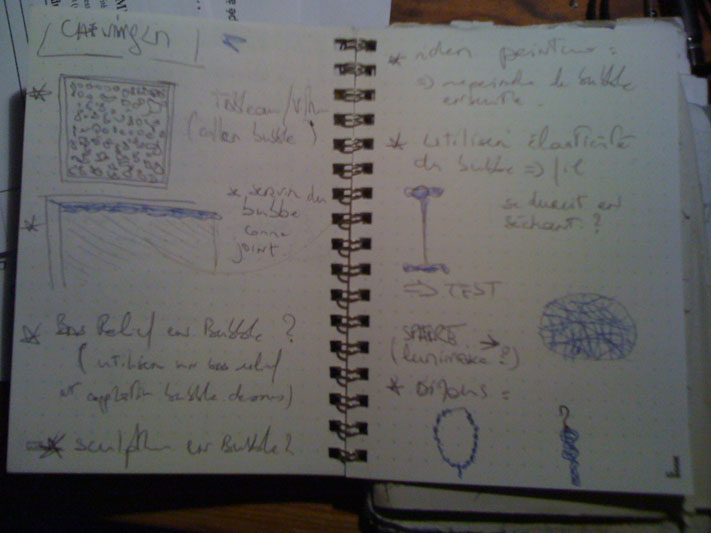 Tableau
(coller bubble)
* servir du
bubble
comme
joint
Bas Relief en Bubble ?
(utiliser un bas relief
et bubble dessus)
sculpture en Bubble ?
* rider peinture =
=> repeindre le bubble
ensuite.
* utiliser élasticité
du bubble => fil
se durcit en
séchant ?
=> TEST
SPHERE
(lumineuse ?)
* BIJOUX =